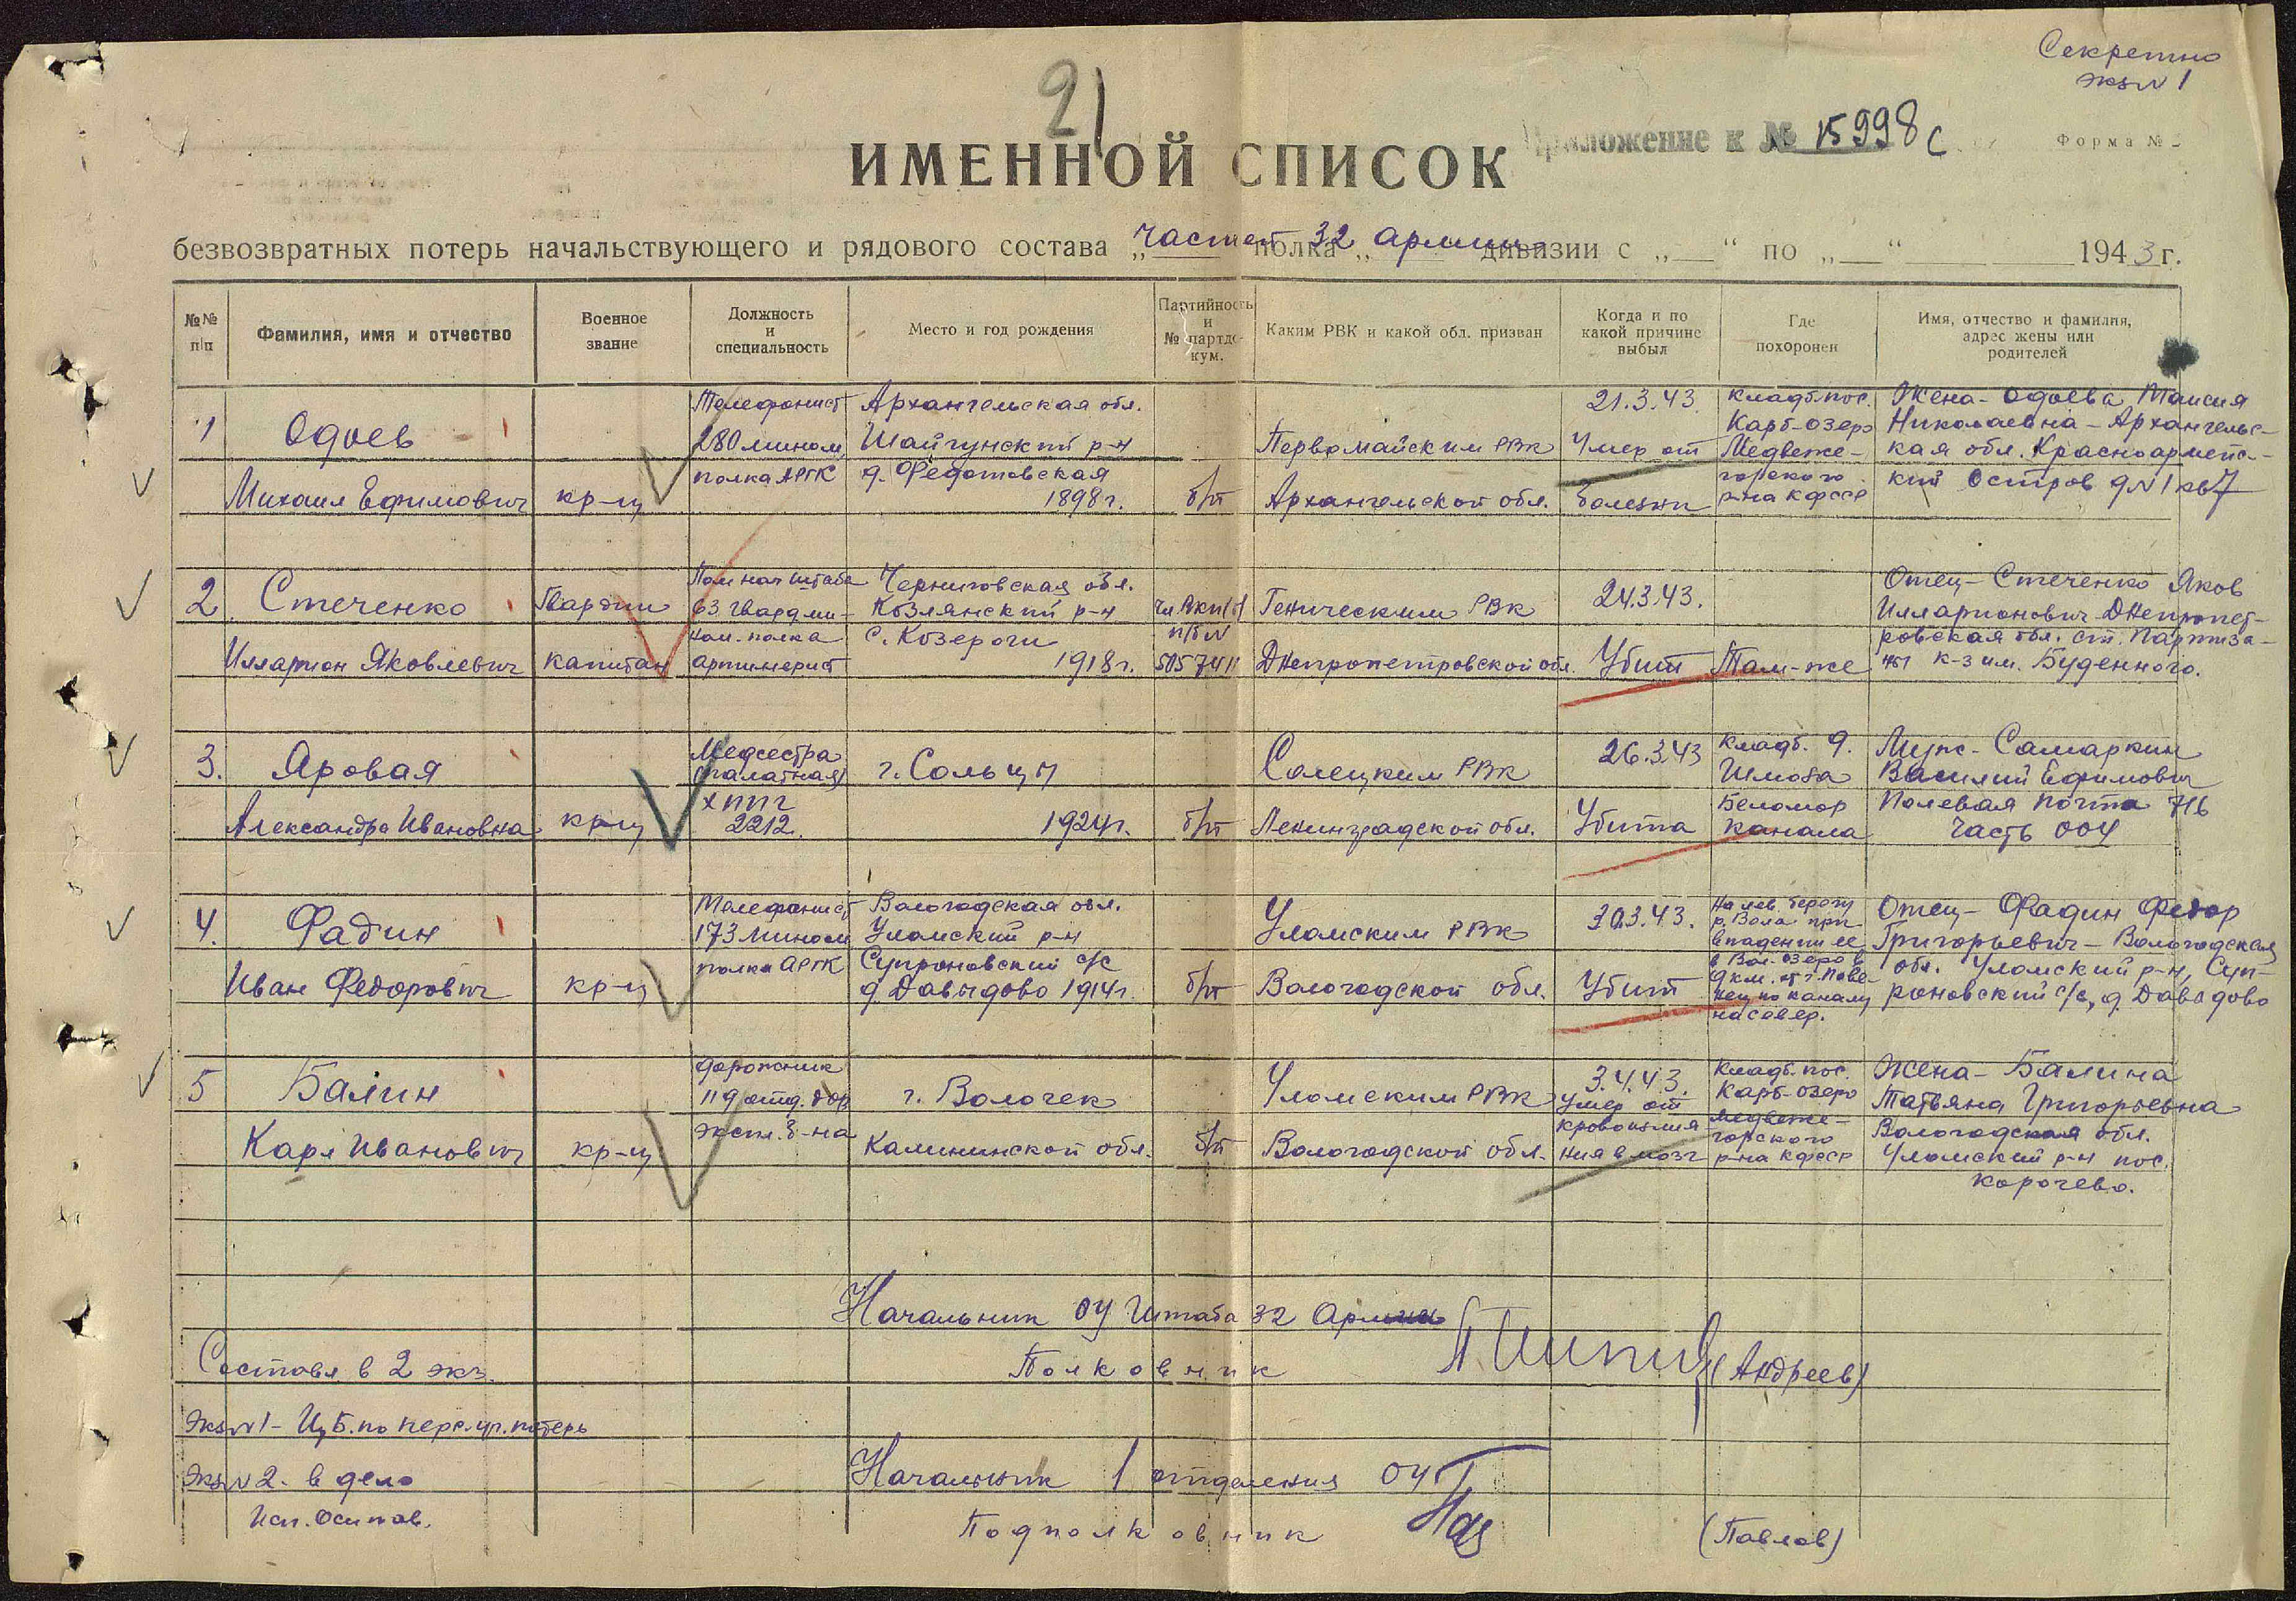 Секретно
экз N 1
21
Приложение к № 15998с
Форма №
ИМЕННОЙ СПИСОК
безвозвратных потерь начальствующего и рядового состава „частей полка „32 армии дивизии с „__“ по „__“ 1943 г.
№№ п/п
Фамилия, имя и отчество
Военное звание
Должность и специальность
Место и год рождения
Партийность и № партдокум.
Каким РВК и какой обл. призван
Когда и по какой причине выбыл
Где похоронен
Имя, отчество и фамилия, адрес жены или родителей
1
Одоев
Михаил Ефимович
кр-ц
Телефонист
280 мином.
полка АРГК
Архангельская обл.
р-н
д. Федотовская
1898 г.
б/п
Первомайским РВК
Архангельской обл.
21.3.43.
Умер от
болезни
Кладб. пос.
Карб-озеро
Медвеже-
горского
р-на КФССР
Жена - Одоева Таисия
Николаевна - Архангельс-
кая обл. Красноармейс-
кий Остров д N 1 кв 7
2.
Стеченко
Илларион Яковлевич
Гвардии
капитан
Пом нач штаба
63 гвард. ми-
ном. полка
артиллерист
Черниговская обл.
Козлянский р-н
с. Козероги
1918 г.
чл. ВКП(б)
п/б N
5057411
Геническим РВК
Днепропетровской обл.
24.3.43.
Убит
Там-же
Отец - Стеченко Яков
Илларионович Днепропет-
ровская обл. ст. Партиза-
ны к-з им. Буденного.
3.
Яровая
Александра Ивановна
кр-ц
Медсестра
(палатная)
ХППГ
2212.
г. Сольцы
1924 г.
б/п
Солецким РВК
Ленинградской обл.
26.3.43
Убита
Кладб. 9.
Шлюза
Беломор
Канала
Муж - Самаркин
Василий Ефимович
Полевая почта 716
Часть 004
4.
Фадин
Иван Федорович
кр-ц
Телефонист
173 мином
полка АРГК
Вологодская обл.
Уломский р-н
Супроновский с/с
д. Давыдово 1914 г.
б/п
Уломским РВК
Вологодской обл.
30.3.43.
Убит
На лев. берегу
р. Вола при
впадении ее
в Вол. озеро в
9 км. от г. Пове-
нец по каналу
на север.
Отец - Фадин Федор
Григорьевич - Вологодская
обл. Уломский р-н, Суп-
роновский с/с, д. Давыдово
5
Балин
Карл Иванович
кр-ц
Дорожник
119 отд. дор
экспл. б-на
г. Волочек
Калининской обл.
б/п
Уломским РВК
Вологодской обл.
3.4.43.
Умер от
кровоизлия-
ния в мозг
Кладб. пос.
Карб-озеро
Медвеже-
горского
р-на КФССР
Жена - Балина
Татьяна Григорьевна
Вологодская обл.
Уломский р-н пос.
Корочево.
Начальник ОУ Штаба 32 Армии
Полковник
(Андреев)
Составл в 2 экз.
Экз N 1 - ЦБ. по перс. уч. потерь
Экз N 2. в дело
Исп. Осипов.
Начальник 1 отделения ОУ
Подполковник
(Павлов)